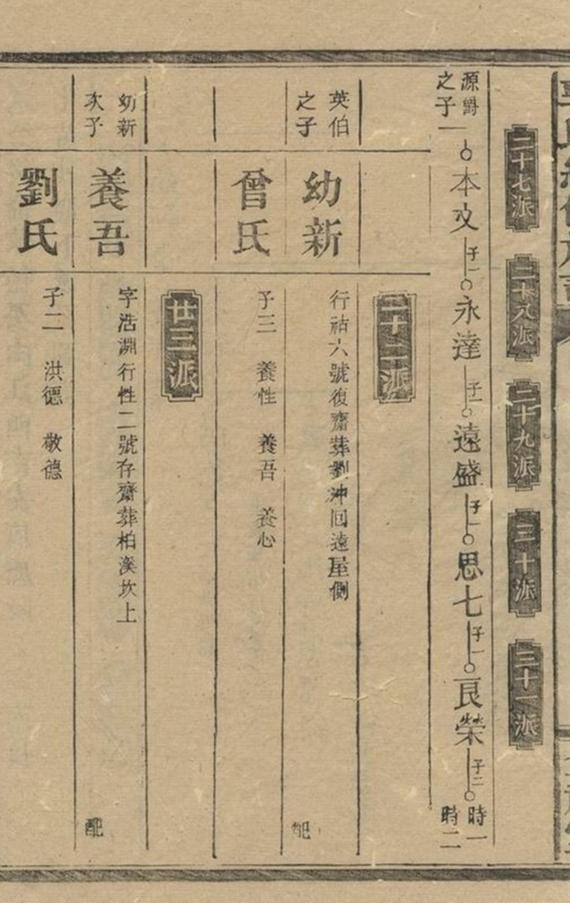 二十七派
二十八派
二十九派
三十派
三十一派
源爵之子一
本文
子一
永達
子一
遠盛
子一
思七
子一
良榮
子二
時一
時二
二十二派
英伯之子
幼新
行祜六號復齋葬劉沖回遠屋側
配
曾氏
子三 養性 養吾 養心
廿三派
幼新次子
養吾
字浩淵行性二號存齋葬柏溪坎上
配
劉氏
子二 洪德 敬德